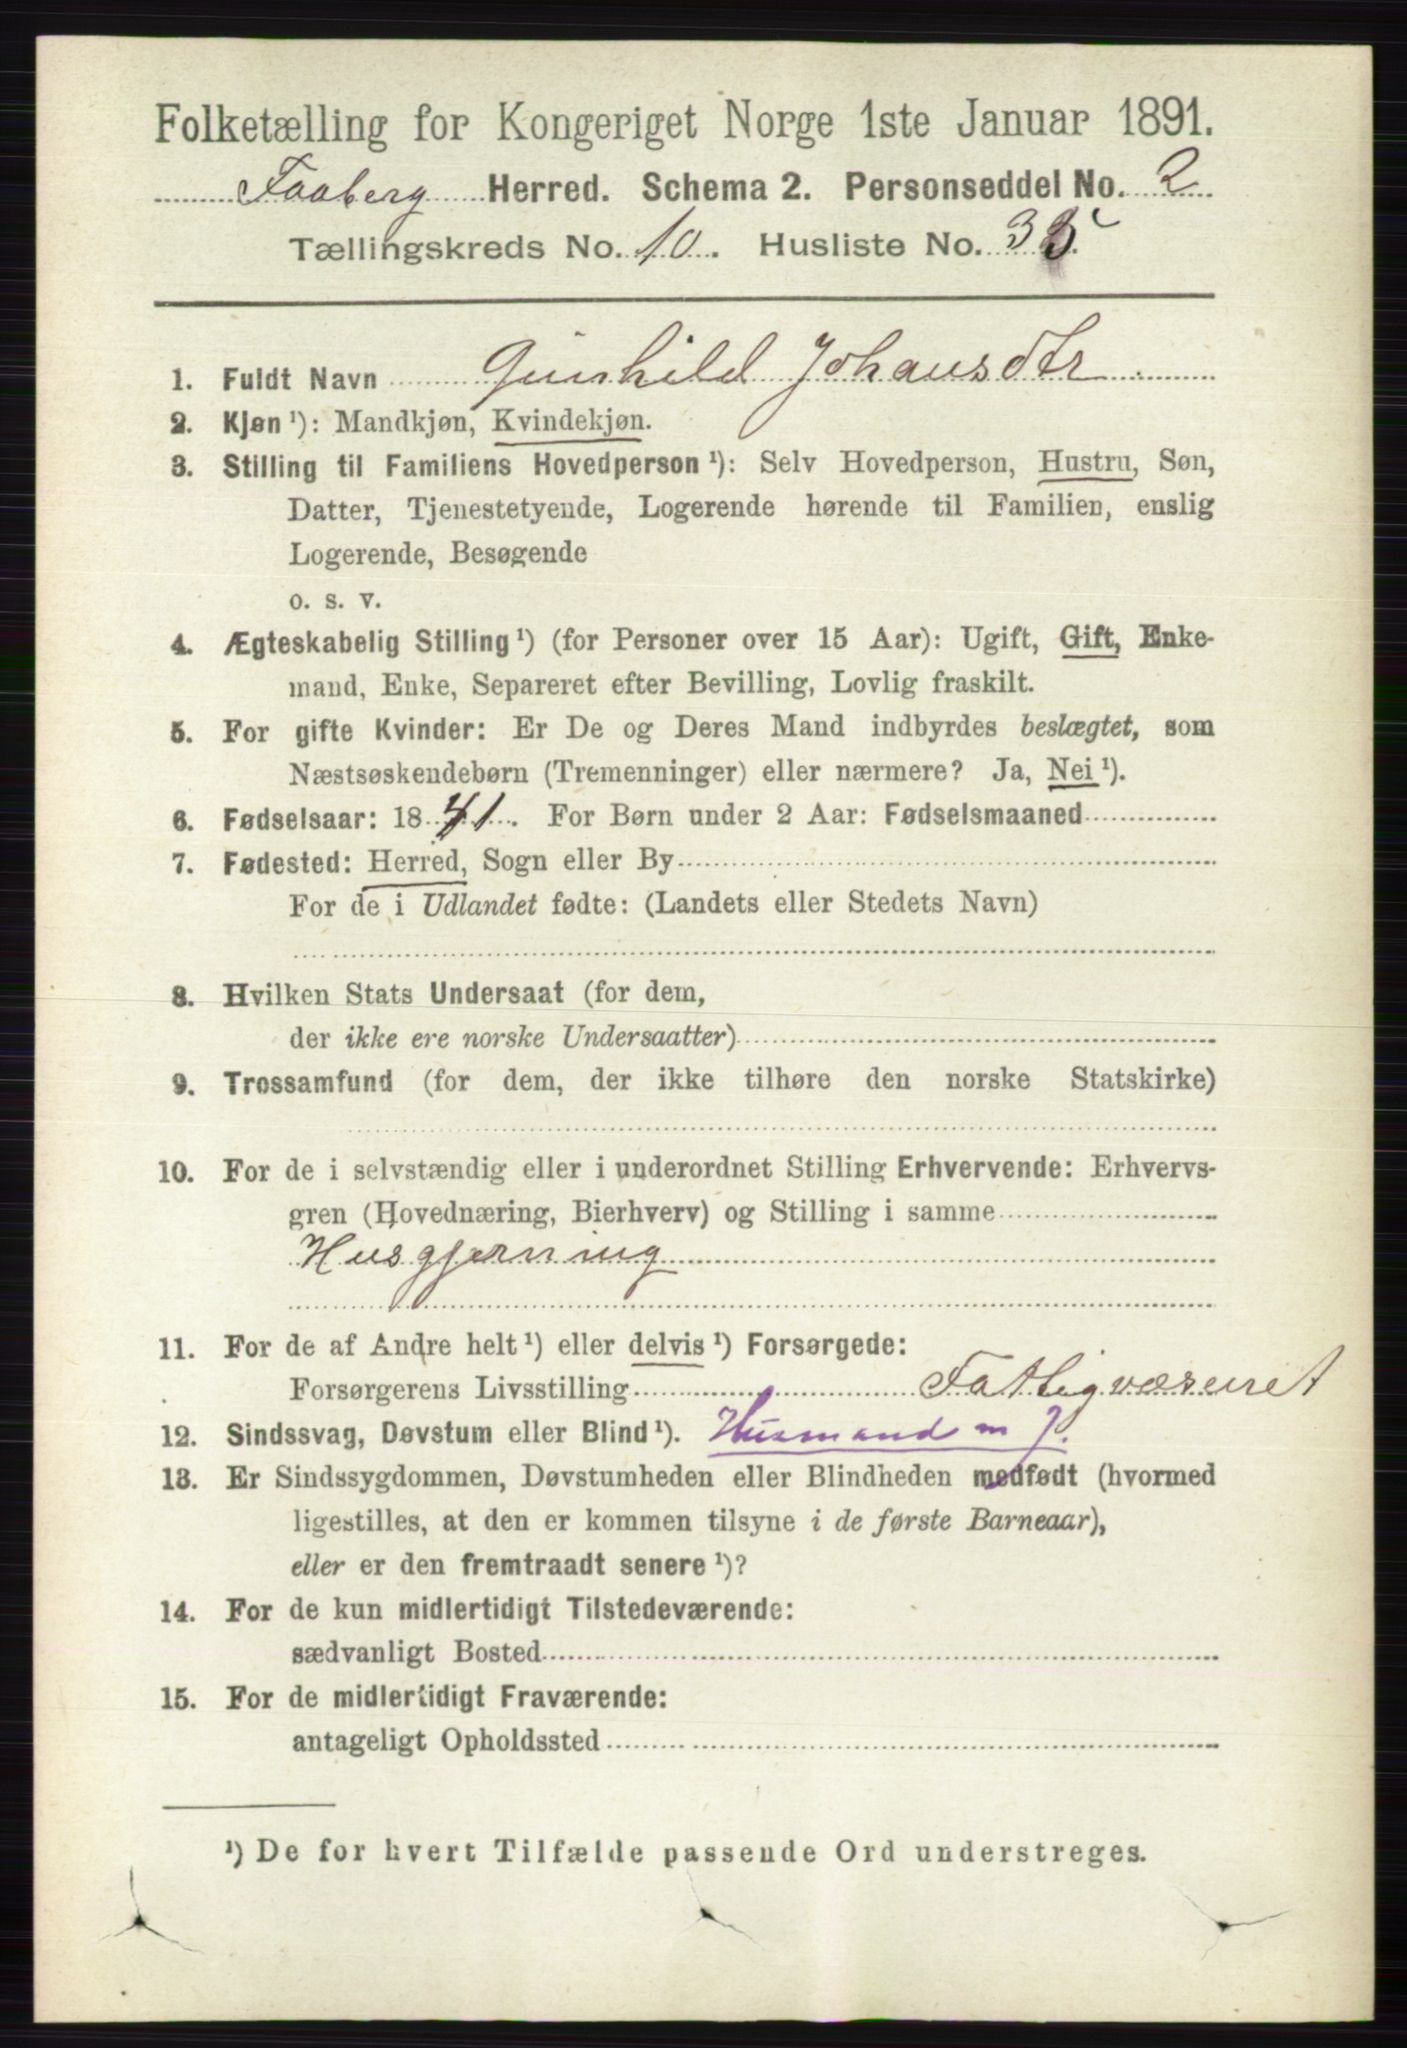 Folketælling for Kongeriget Norge 1ste Januar 1891.
Faaberg Herred. Schema 2. Personseddel No. 2
Tællingskreds No. 10. Husliste No. 35.
1. Fuldt Navn Gunhild Johansdtr
2. Kjøn ¹): Mandkjøn, Kvindekjøn.
3. Stilling til Familiens Hovedperson ¹): Selv Hovedperson, Hustru, Søn,
Datter, Tjenestetyende, Logerende hørende til Familien, enslig
Logerende, Besøgende
o. s. v.
4. Ægteskabelig Stilling ¹) (for Personer over 15 Aar): Ugift, Gift, Enke-
mand, Enke, Separeret efter Bevilling, Lovlig fraskilt.
5. For gifte Kvinder: Er De og Deres Mand indbyrdes beslægtet, som
Næstsøskendebørn (Tremenninger) eller nærmere? Ja, Nei ¹).
6. Fødselsaar: 1841. For Børn under 2 Aar: Fødselsmaaned
7. Fødested: Herred, Sogn eller By
For de i Udlandet fødte: (Landets eller Stedets Navn)
8. Hvilken Stats Undersaat (for dem,
der ikke ere norske Undersaatter)
9. Trossamfund (for dem, der ikke tilhøre den norske Statskirke)
10. For de i selvstændig eller i underordnet Stilling Erhvervende: Erhvervs-
gren (Hovednæring, Bierhverv) og Stilling i samme
Husgjerning
11. For de af Andre helt ¹) eller delvis ¹) Forsørgede:
Forsørgerens Livsstilling Fattigvæsenet
12. Sindssvag, Døvstum eller Blind ¹). Husmand m J.
13. Er Sindssygdommen, Døvstumheden eller Blindheden medfødt (hvormed
ligestilles, at den er kommen tilsyne i de første Barneaar),
eller er den fremtraadt senere ¹)?
14. For de kun midlertidigt Tilstedeværende:
sædvanligt Bosted
15. For de midlertidigt Fraværende:
antageligt Opholdssted
¹) De for hvert Tilfælde passende Ord understreges.